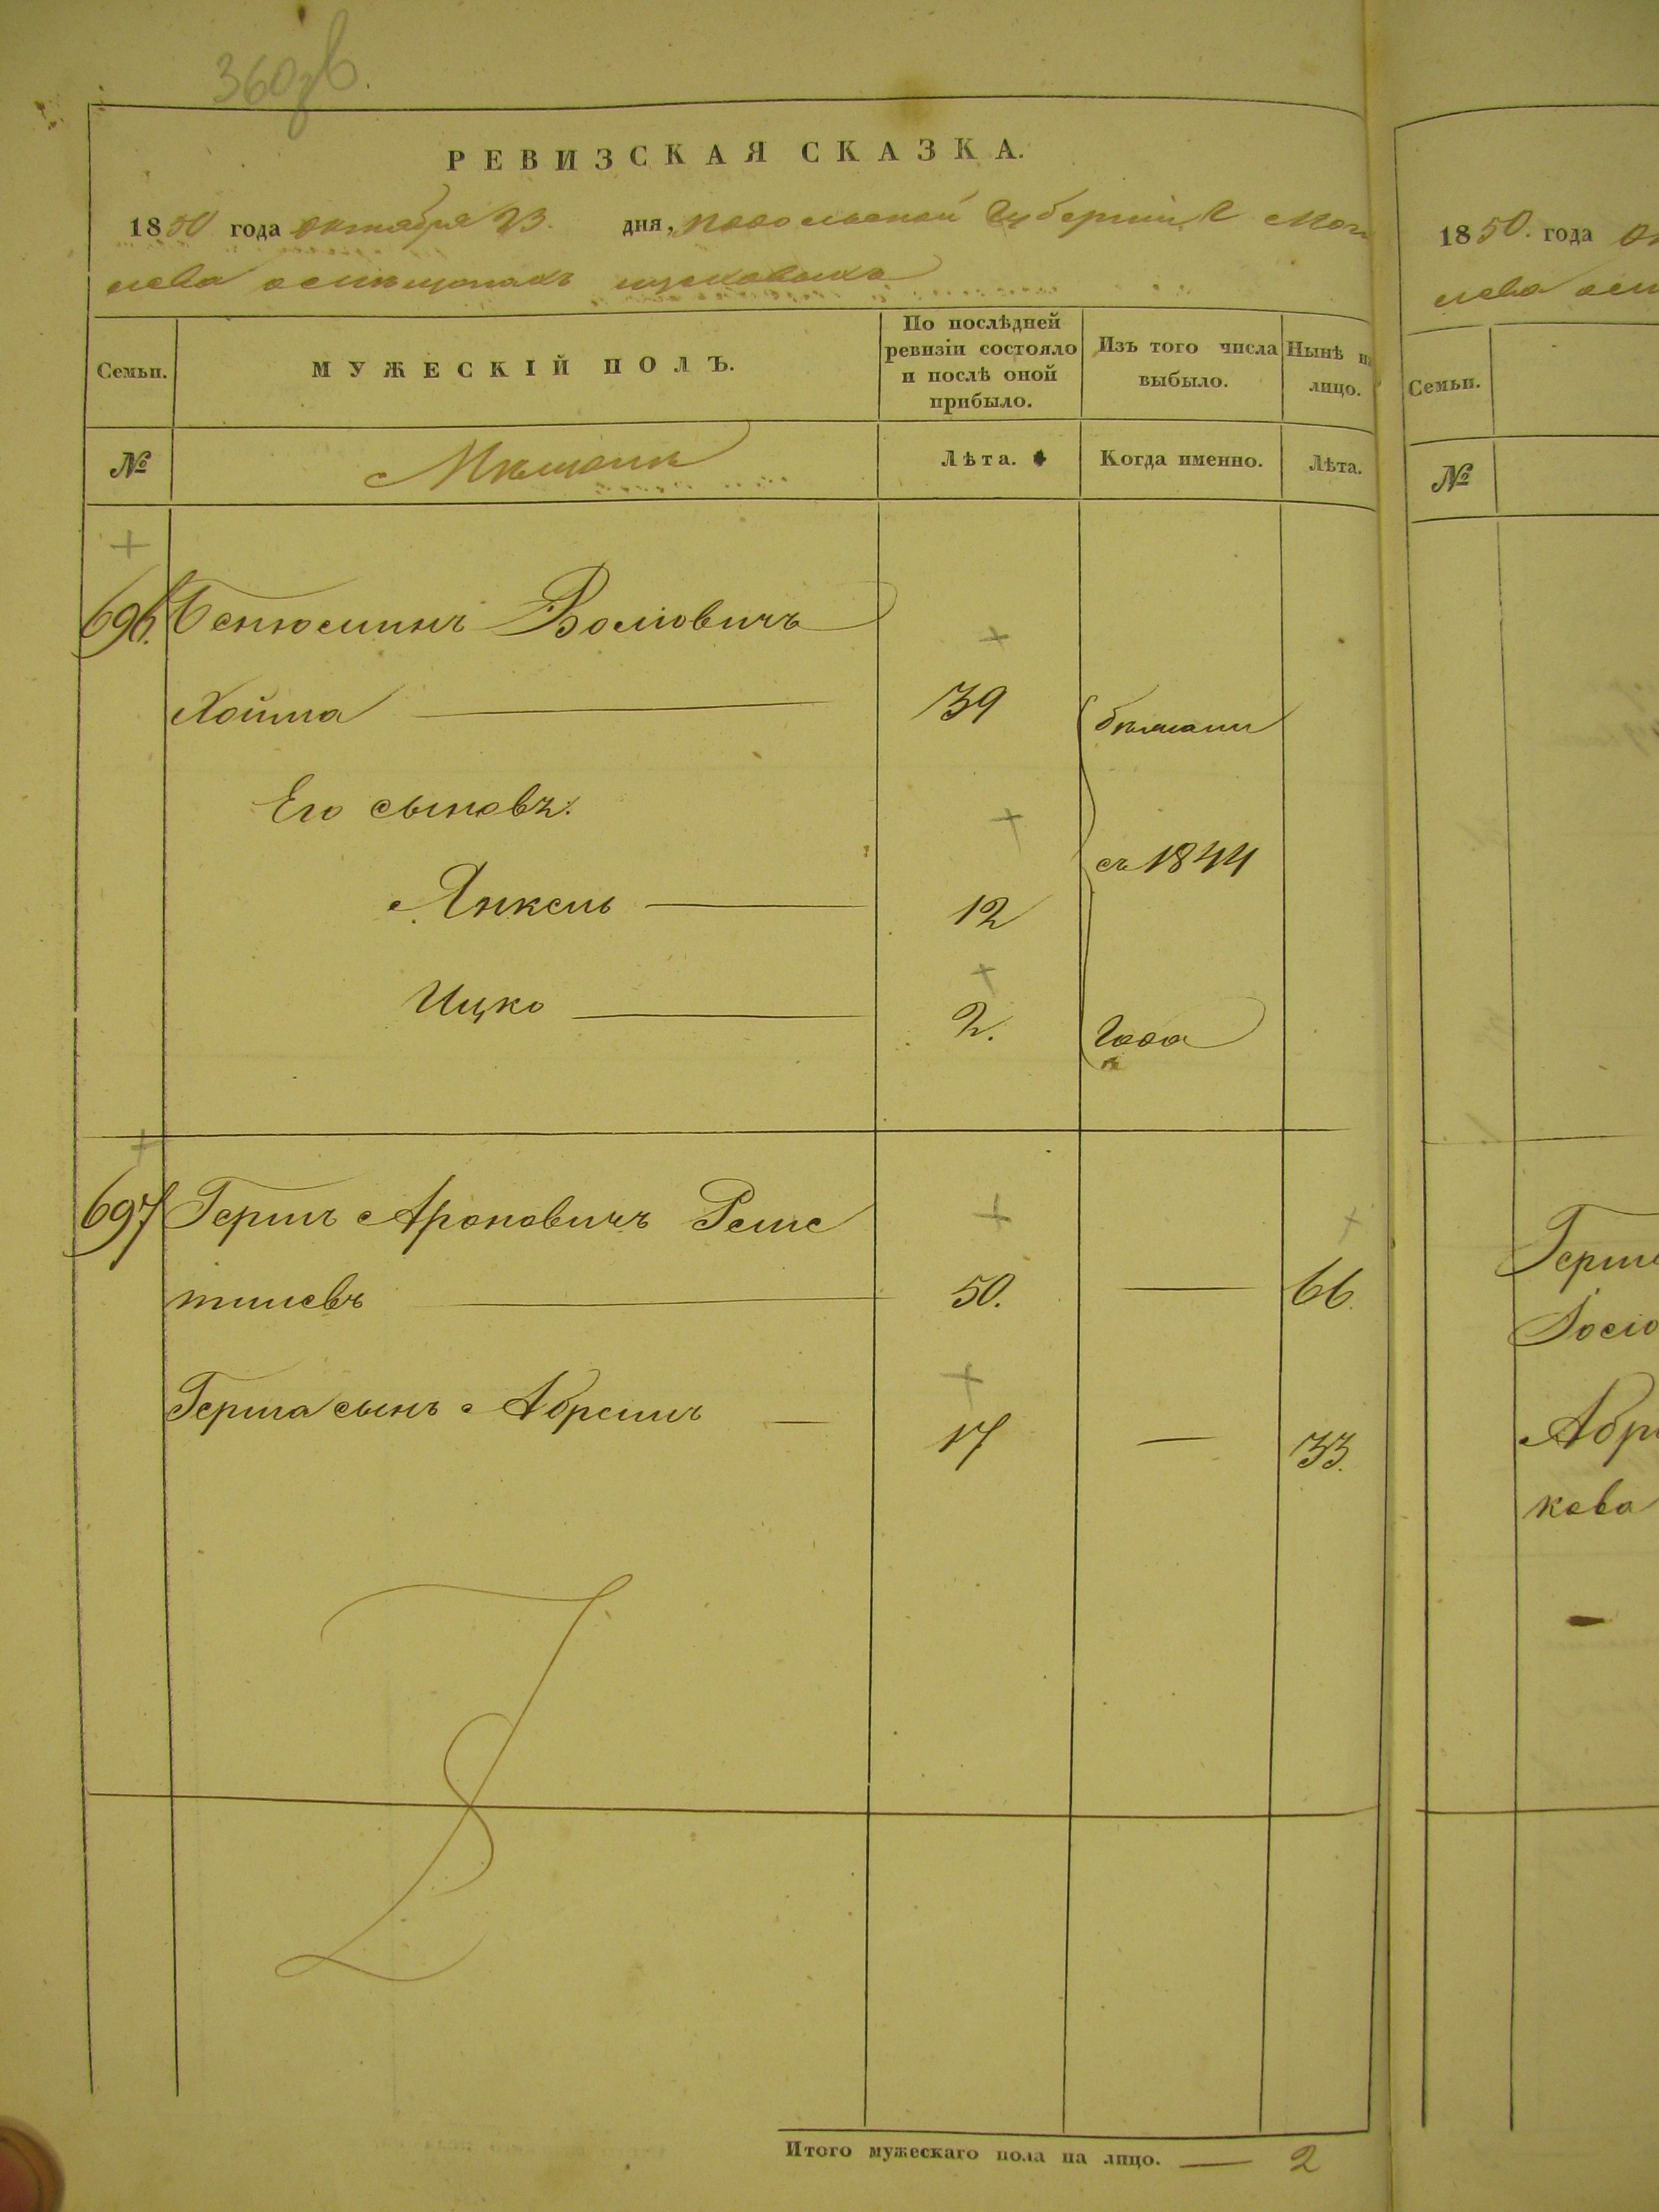 360 об.
РЕВИЗСКАЯ СКАЗКА.
1850 года октября 23. дня, Подольской Губерніи Г Моги
лева о мѣщанахъ
Семьи.
МУЖЕСКІЙ ПОЛЪ.
По послѣдней ревизіи состояло и послѣ оной прибыло.
Изъ того числа выбыло.
Нынѣ на лицо.
№
Мѣщане
Лѣта.
Когда именно.
Лѣта.
696. Бенюминъ Волковичъ
Хойма — 39 бѣжали
Его сыновъ:
съ 1844
Янкель — 12
Ицко — 2. года
697 Гершъ Ароновичъ Реше
тишевъ — 50. — 66.
Герша сынъ Абремъ — 17 — 33.
Итого мужескаго пола на лицо. — 2
1850. года ок
лева о
Семьи.
№
Герш
Абр
кова